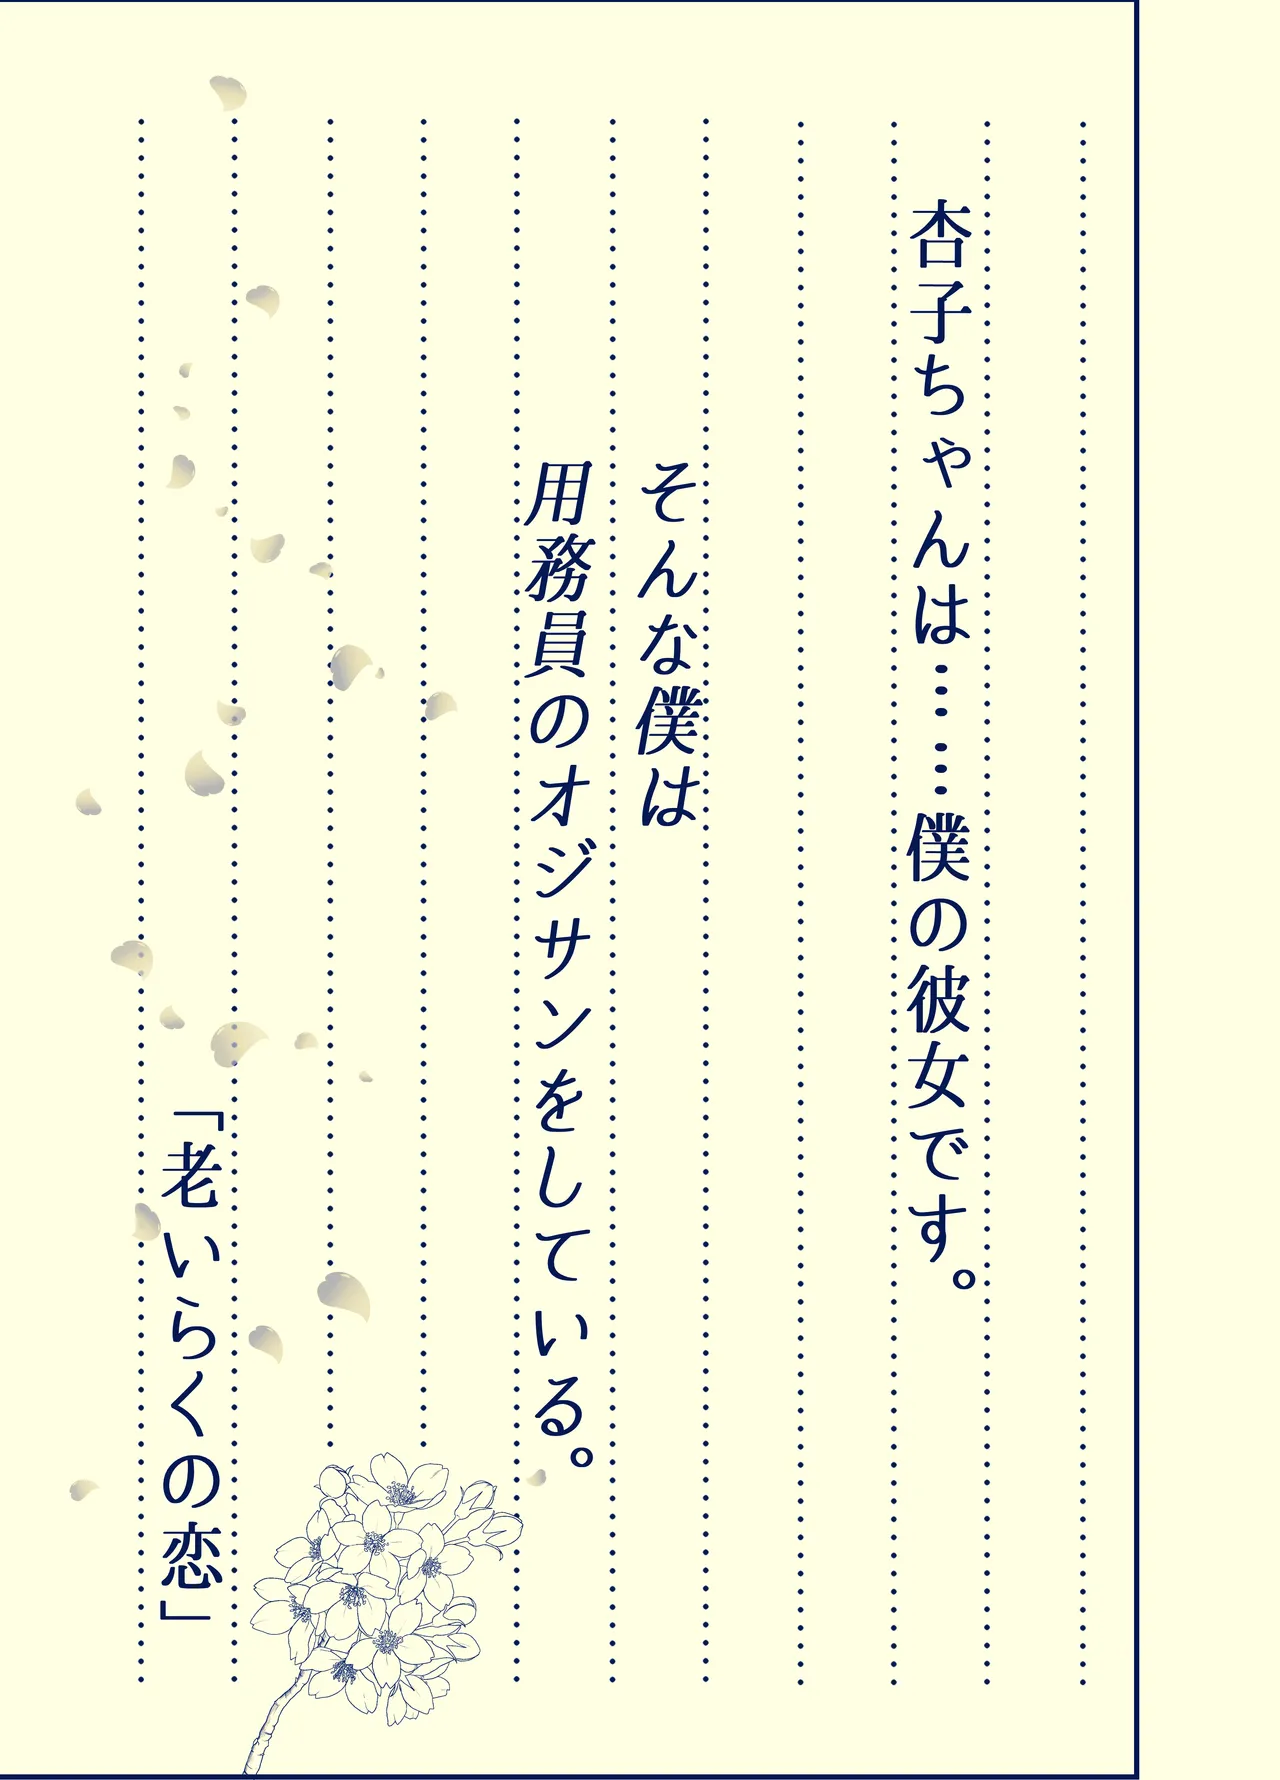 杏子ちゃんは……僕の彼女です。
そんな僕は
用務員のオジサンをしている。
「老いらくの恋」